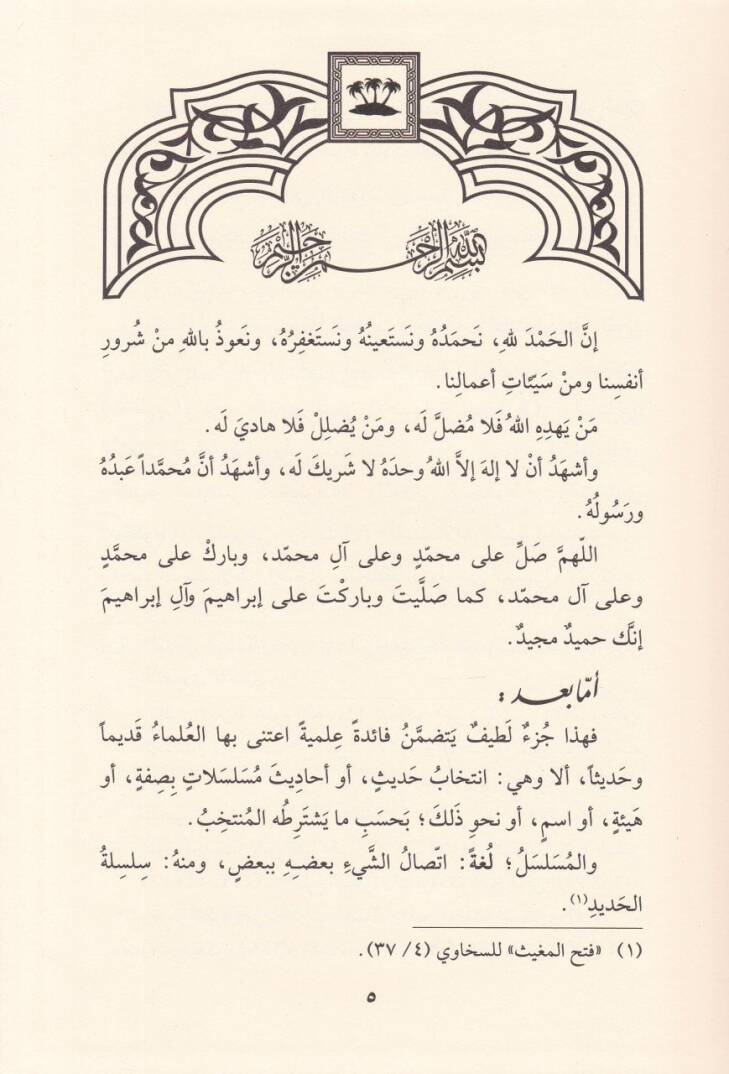 بسم الله الرحمن الرحيم
إنَّ الحَمْدَ للهِ، نَحمَدُهُ ونَستَعينُهُ ونَستَغفِرُهُ، ونَعوذُ باللهِ منْ شُرورِ
أنفسِنا ومنْ سَيِّئاتِ أعمالِنا.
مَنْ يَهدِهِ اللهُ فَلا مُضلَّ لَه، ومَنْ يُضلِلْ فَلا هاديَ لَه.
وأشهَدُ أنْ لا إلهَ إلاَّ اللهُ وحدَهُ لا شَريكَ لَه، وأشهَدُ أنَّ مُحمَّداً عَبدُهُ
ورَسُولُهُ.
اللّهمَّ صَلِّ على محمّدٍ وعلى آلِ محمّد، وباركْ على محمَّدٍ
وعلى آل محمّد، كما صَلَّيتَ وباركْتَ على إبراهيمَ وآلِ إبراهيمَ
إنَّك حميدٌ مجيدٌ.
أمّا بعد :
فهذا جُزءٌ لَطيفٌ يَتضمَّنُ فائدةً عِلميةً اعتنى بها العُلماءُ قَديماً
وحَديثاً، ألا وهي: انتخابُ حَديثٍ، أو أحاديثَ مُسَلسَلاتٍ بِصِفةٍ، أو
هَيئةٍ، أو اسمٍ، أو نحوِ ذَلكَ؛ بحَسَبِ ما يَشتَرِطُه المُنتخِبُ.
والمُسَلسَلُ؛ لُغةً: اتّصالُ الشَّيءِ بعضِهِ ببعضٍ، ومنهُ: سِلسِلةُ
الحَديدِ(١).
(١) «فتح المغيث» للسخاوي (٤/ ٣٧).
٥